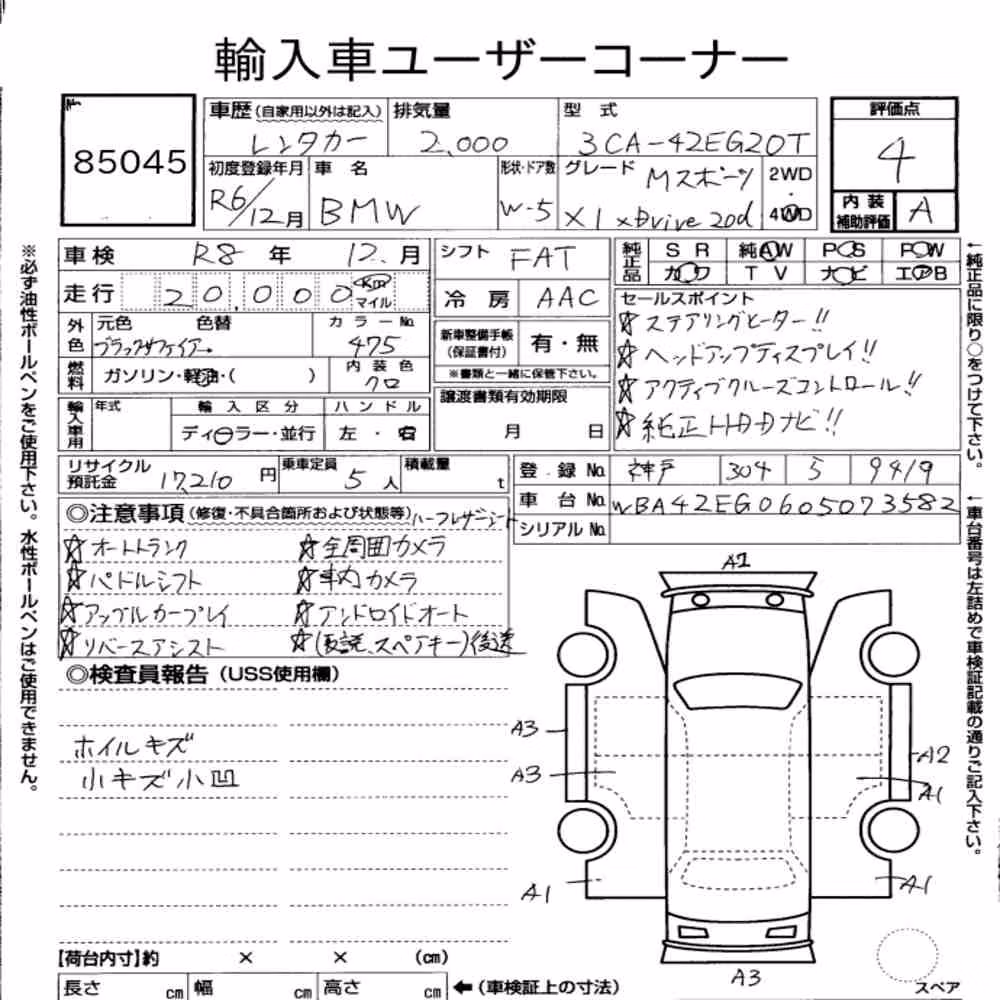 輸入車ユーザーコーナー
No.
85045
車歴(自家用以外は記入) 排気量 型式 評価点
レンタカー 2,000 3CA-42EG20T 4
初度登録年月 車名 形状・ドア数 グレード 2WD 4WD
R6/12月 BMW W-5 Mスポーツ
X1 xDrive 20d
内装補助評価 A
車検 R8年 12.月 シフト FAT
純正品 SR 純AW PS PW
カワ TV ナビ エアB
走行 20,000 Km マイル 冷房 AAC
外色 元色 色替 カラーNo.
ブラックサファイアー 475
新車整備手帳(保証書付) 有・無
※書類と一緒に保管下さい。
燃料 ガソリン・軽油・( ) 内装色 クロ
輸入車用 年式 輸入区分 ハンドル
ディーラー・並行 左・右
譲渡書類有効期限
月 日
セールスポイント
☆ステアリングヒーター!!
☆ヘッドアップディスプレイ!!
☆アクティブクルーズコントロール!!
☆純正HDDナビ!!
リサイクル預託金 17,210円 乗車定員 5人 積載量 t
登録No. 神戸 304 う 9419
車台No. WBA42EG0605073582
シリアルNo.
◎注意事項(修復・不具合箇所および状態等)ハーフレザーシート
☆オートトランク ☆全周囲カメラ
☆パドルシフト ☆車内カメラ
☆アップルカープレイ ☆アンドロイドオート
☆リバースアシスト ☆(取説、スペアキー)後送
◎検査員報告(USS使用欄)
ホイルキズ
小キズ小凹
A1
A3
A3
A2
A1
A1
A1
A3
スペア
【荷台内寸】約 × × (cm)
長さ cm 幅 cm 高さ cm ←(車検証上の寸法)
※必ず油性ボールペンをご使用下さい。水性ボールペンはご使用できません。
←純正品に限り○をつけて下さい。
←車台番号は左詰めで車検証記載の通りご記入下さい。